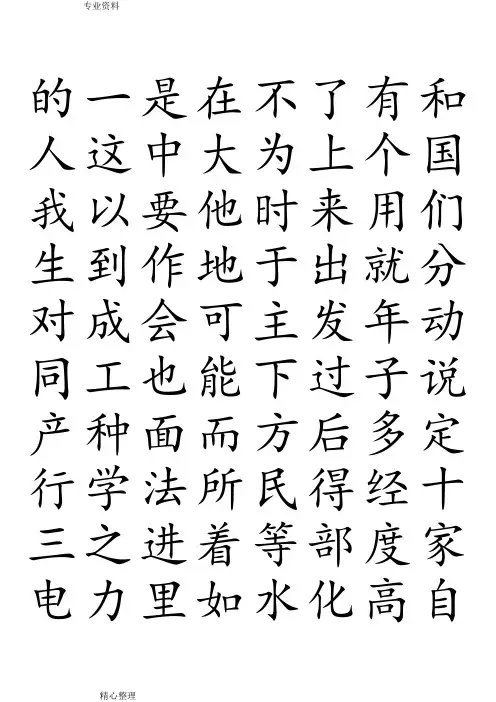 专业资料
的一是在不了有和
人这中大为上个国
我以要他时来用们
生到作地于出就分
对成会可主发年动
同工也能下过子说
产种面而方后多定
行学法所民得经十
三之进着等部度家
电力里如水化高自
精心整理